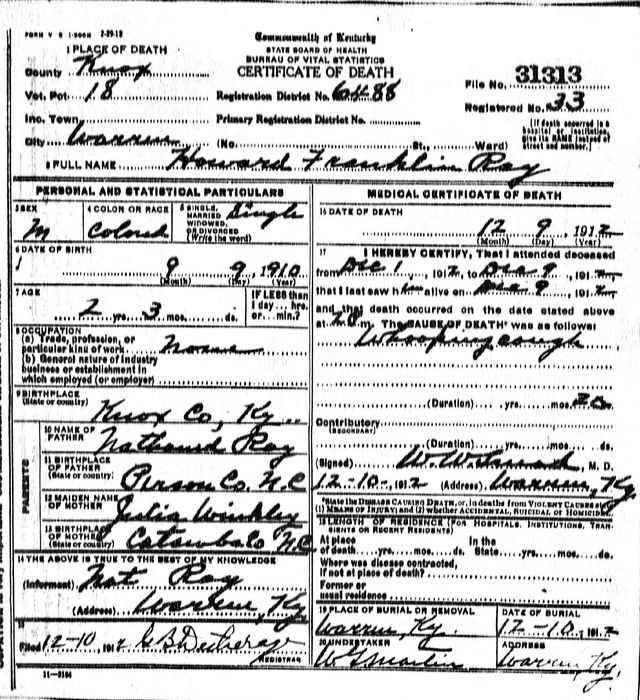 FORM V. S. 1-500M 2-29-12
Commonwealth of Kentucky
STATE BOARD OF HEALTH
BUREAU OF VITAL STATISTICS
CERTIFICATE OF DEATH
1 PLACE OF DEATH
County Knox
Vot. Pct. 18
Inc. Town
City Warren (No. St., Ward)
Registration District No. 6488
Primary Registration District No.
File No. 31313
Registered No. 33
(If death occurred in a hospital or institution, give its NAME instead of street and number.)
2 FULL NAME Howard Franklin Ray
PERSONAL AND STATISTICAL PARTICULARS
3 SEX M
4 COLOR OR RACE Colored
5 SINGLE, MARRIED WIDOWED, OR DIVORCED (Write the word) Single
6 DATE OF BIRTH
9 9, 1910
(Month) (Day) (Year)
7 AGE
2 yrs. 3 mos. ds.
IF LESS than 1 day... hrs. or... min.?
8 OCCUPATION
(a) Trade, profession, or particular kind of work None
(b) General nature of industry business or establishment in which employed (or employer)
9 BIRTHPLACE
(State or country) Knox Co, Ky
PARENTS
10 NAME OF FATHER Nathaniel Ray
11 BIRTHPLACE OF FATHER (State or country) Person Co, N.C
12 MAIDEN NAME OF MOTHER Julia Winkley
13 BIRTHPLACE OF MOTHER (State or country) N.C
14 THE ABOVE IS TRUE TO THE BEST OF MY KNOWLEDGE
(Informant) Nat Ray
(Address) Warren, Ky
15
Filed 12-10, 1912
REGISTRAR
11-3184
MEDICAL CERTIFICATE OF DEATH
16 DATE OF DEATH
12 9, 1912
(Month) (Day) (Year)
17 I HEREBY CERTIFY, That I attended deceased
from Dec 1, 1912, to Dec 9, 1912
that I last saw him alive on Dec 9, 1912
and that death occurred on the date stated above
at m. The CAUSE OF DEATH* was as follows:
Whooping cough
(Duration) yrs. mos. ds.
Contributory
(SECONDARY)
(Duration) yrs. mos. ds.
(Signed) W. W. M. D.
12-10-, 1912 (Address) Warren, Ky
*State the DISEASE CAUSING DEATH, or, in deaths from VIOLENT CAUSES state (1) MEANS OF INJURY; and (2) whether ACCIDENTAL, SUICIDAL or HOMICIDAL
18 LENGTH OF RESIDENCE (FOR HOSPITALS, INSTITUTIONS, TRANSIENTS OR RECENT RESIDENTS)
At place of death yrs. mos. ds. In the State yrs. mos. ds.
Where was disease contracted,
if not at place of death?
Former or
usual residence
19 PLACE OF BURIAL OR REMOVAL
Warren, Ky.
DATE OF BURIAL
12-10, 1912
20 UNDERTAKER
Martin
ADDRESS
Warren, Ky.